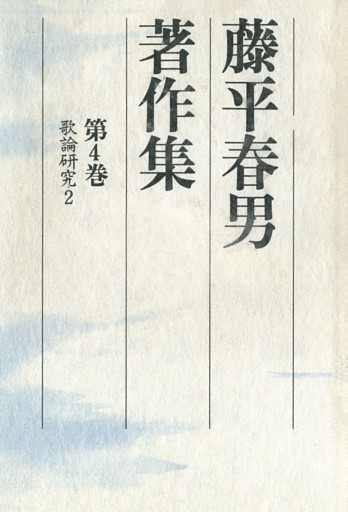 藤平春男
著作集
第4巻
歌論研究2